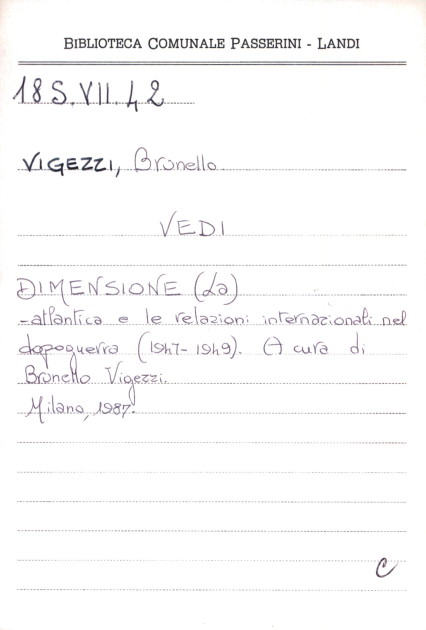 BIBLIOTECA COMUNALE PASSERINI - LANDI
18 S.VII.42
VIGEZZI, Brunello.
VEDI
DIMENSIONE (La)
-atlantica e le relazioni internazionali nel
dopoguerra (1947-1949). (A cura di
Brunello Vigezzi.
Milano, 1987.
C